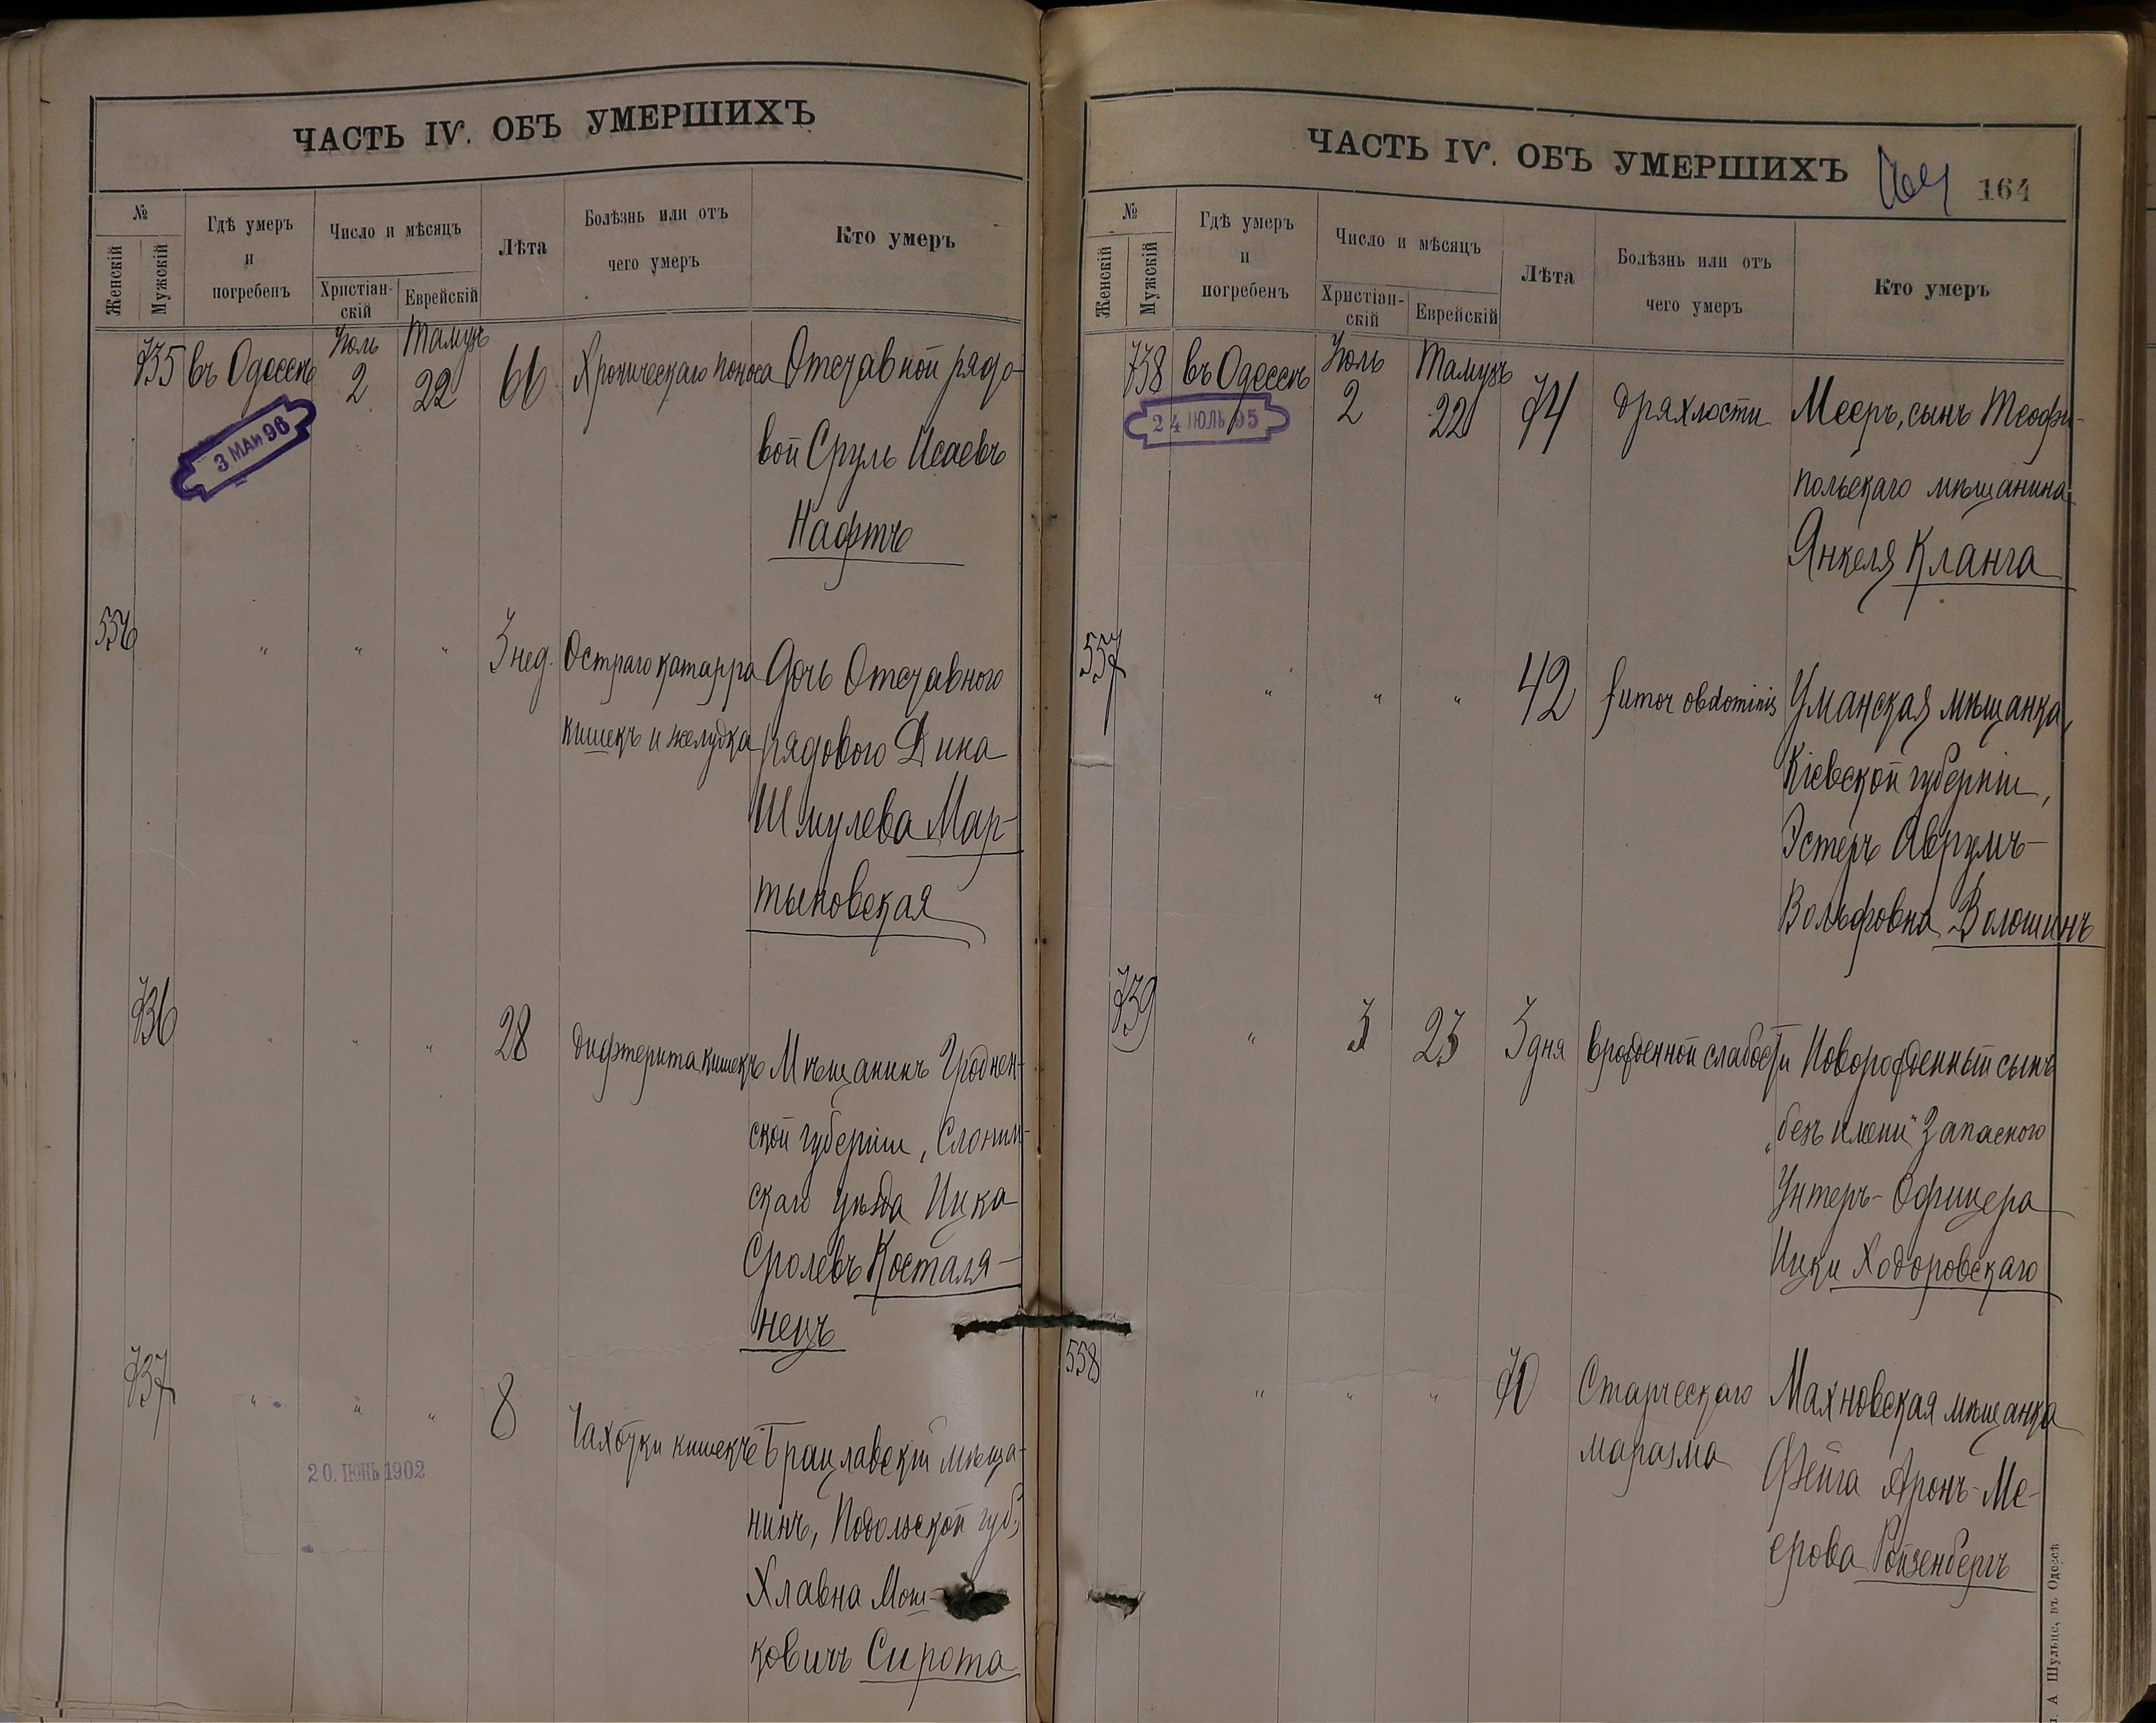 ЧАСТЬ IV. ОБЪ УМЕРШИХЪ
№
Женскій
Мужскій
Гдѣ умеръ
и
погребенъ
Число и мѣсяцъ
Христіан-
скій
Еврейскій
Лѣта
Болѣзнь или отъ
чего умеръ
Кто умеръ
735 въ Одессѣ Іюль 2 Тамузъ 22 66 Хроническаго поноса Отставной рядо-
вой Сруль Исаевъ
Нафтъ
3 МАИ 96
556 " " " 3 нед. Остраго катарра Дочь Отставного
кишекъ и желудка рядового Дина
Шмулева Мар-
тыновская
736 " " " 28 дифтерита кишекъ Мѣщанинъ Гроднен-
ской губерніи, Слоним-
скаго уѣзда Ицка
Сролевъ Косталя-
нецъ
737 " " " 8 Чахотки кишекъ Брацлавскій мѣща-
нинъ, Подольской губ.
Хлавна Мош-
ковичъ Сирота
20. ІЮНЬ 1902
ЧАСТЬ IV. ОБЪ УМЕРШИХЪ
164
№
Женскій
Мужскій
Гдѣ умеръ
и
погребенъ
Число и мѣсяцъ
Христіан-
скій
Еврейскій
Лѣта
Болѣзнь или отъ
чего умеръ
Кто умеръ
738 въ Одессѣ Іюль 2 Тамузъ 22 74 дряхлости Мееръ, сынъ Теофи-
польскаго мѣщанина
Янкеля Кланга
24 ІЮЛЬ 95
557 " " " 42 tumor abdominis Уманская мѣщанка,
Кіевской губерніи,
Эстеръ Аврумъ-
Вольфовна Волошинъ
739 " 3 23 3 дня врожденной слабости Новорожденный сынъ
"безъ имени" Запасного
Унтеръ-Офицера
Ицки Ходоровскаго
558 " " " 70 Старческаго Махновская мѣщанка
маразма Фейга Аронъ-Ме-
ерова Ройзенбергъ
А Шульце, въ Одессѣ.